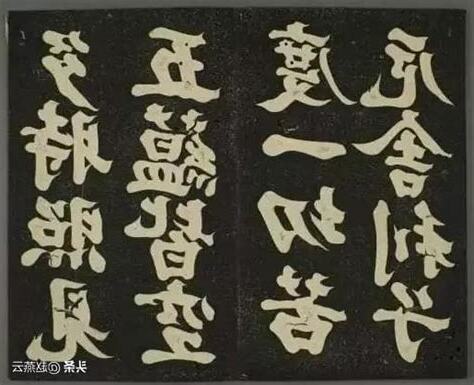 多時照見
五蘊皆空
度一切苦
厄舍利子
头条@赵燕云